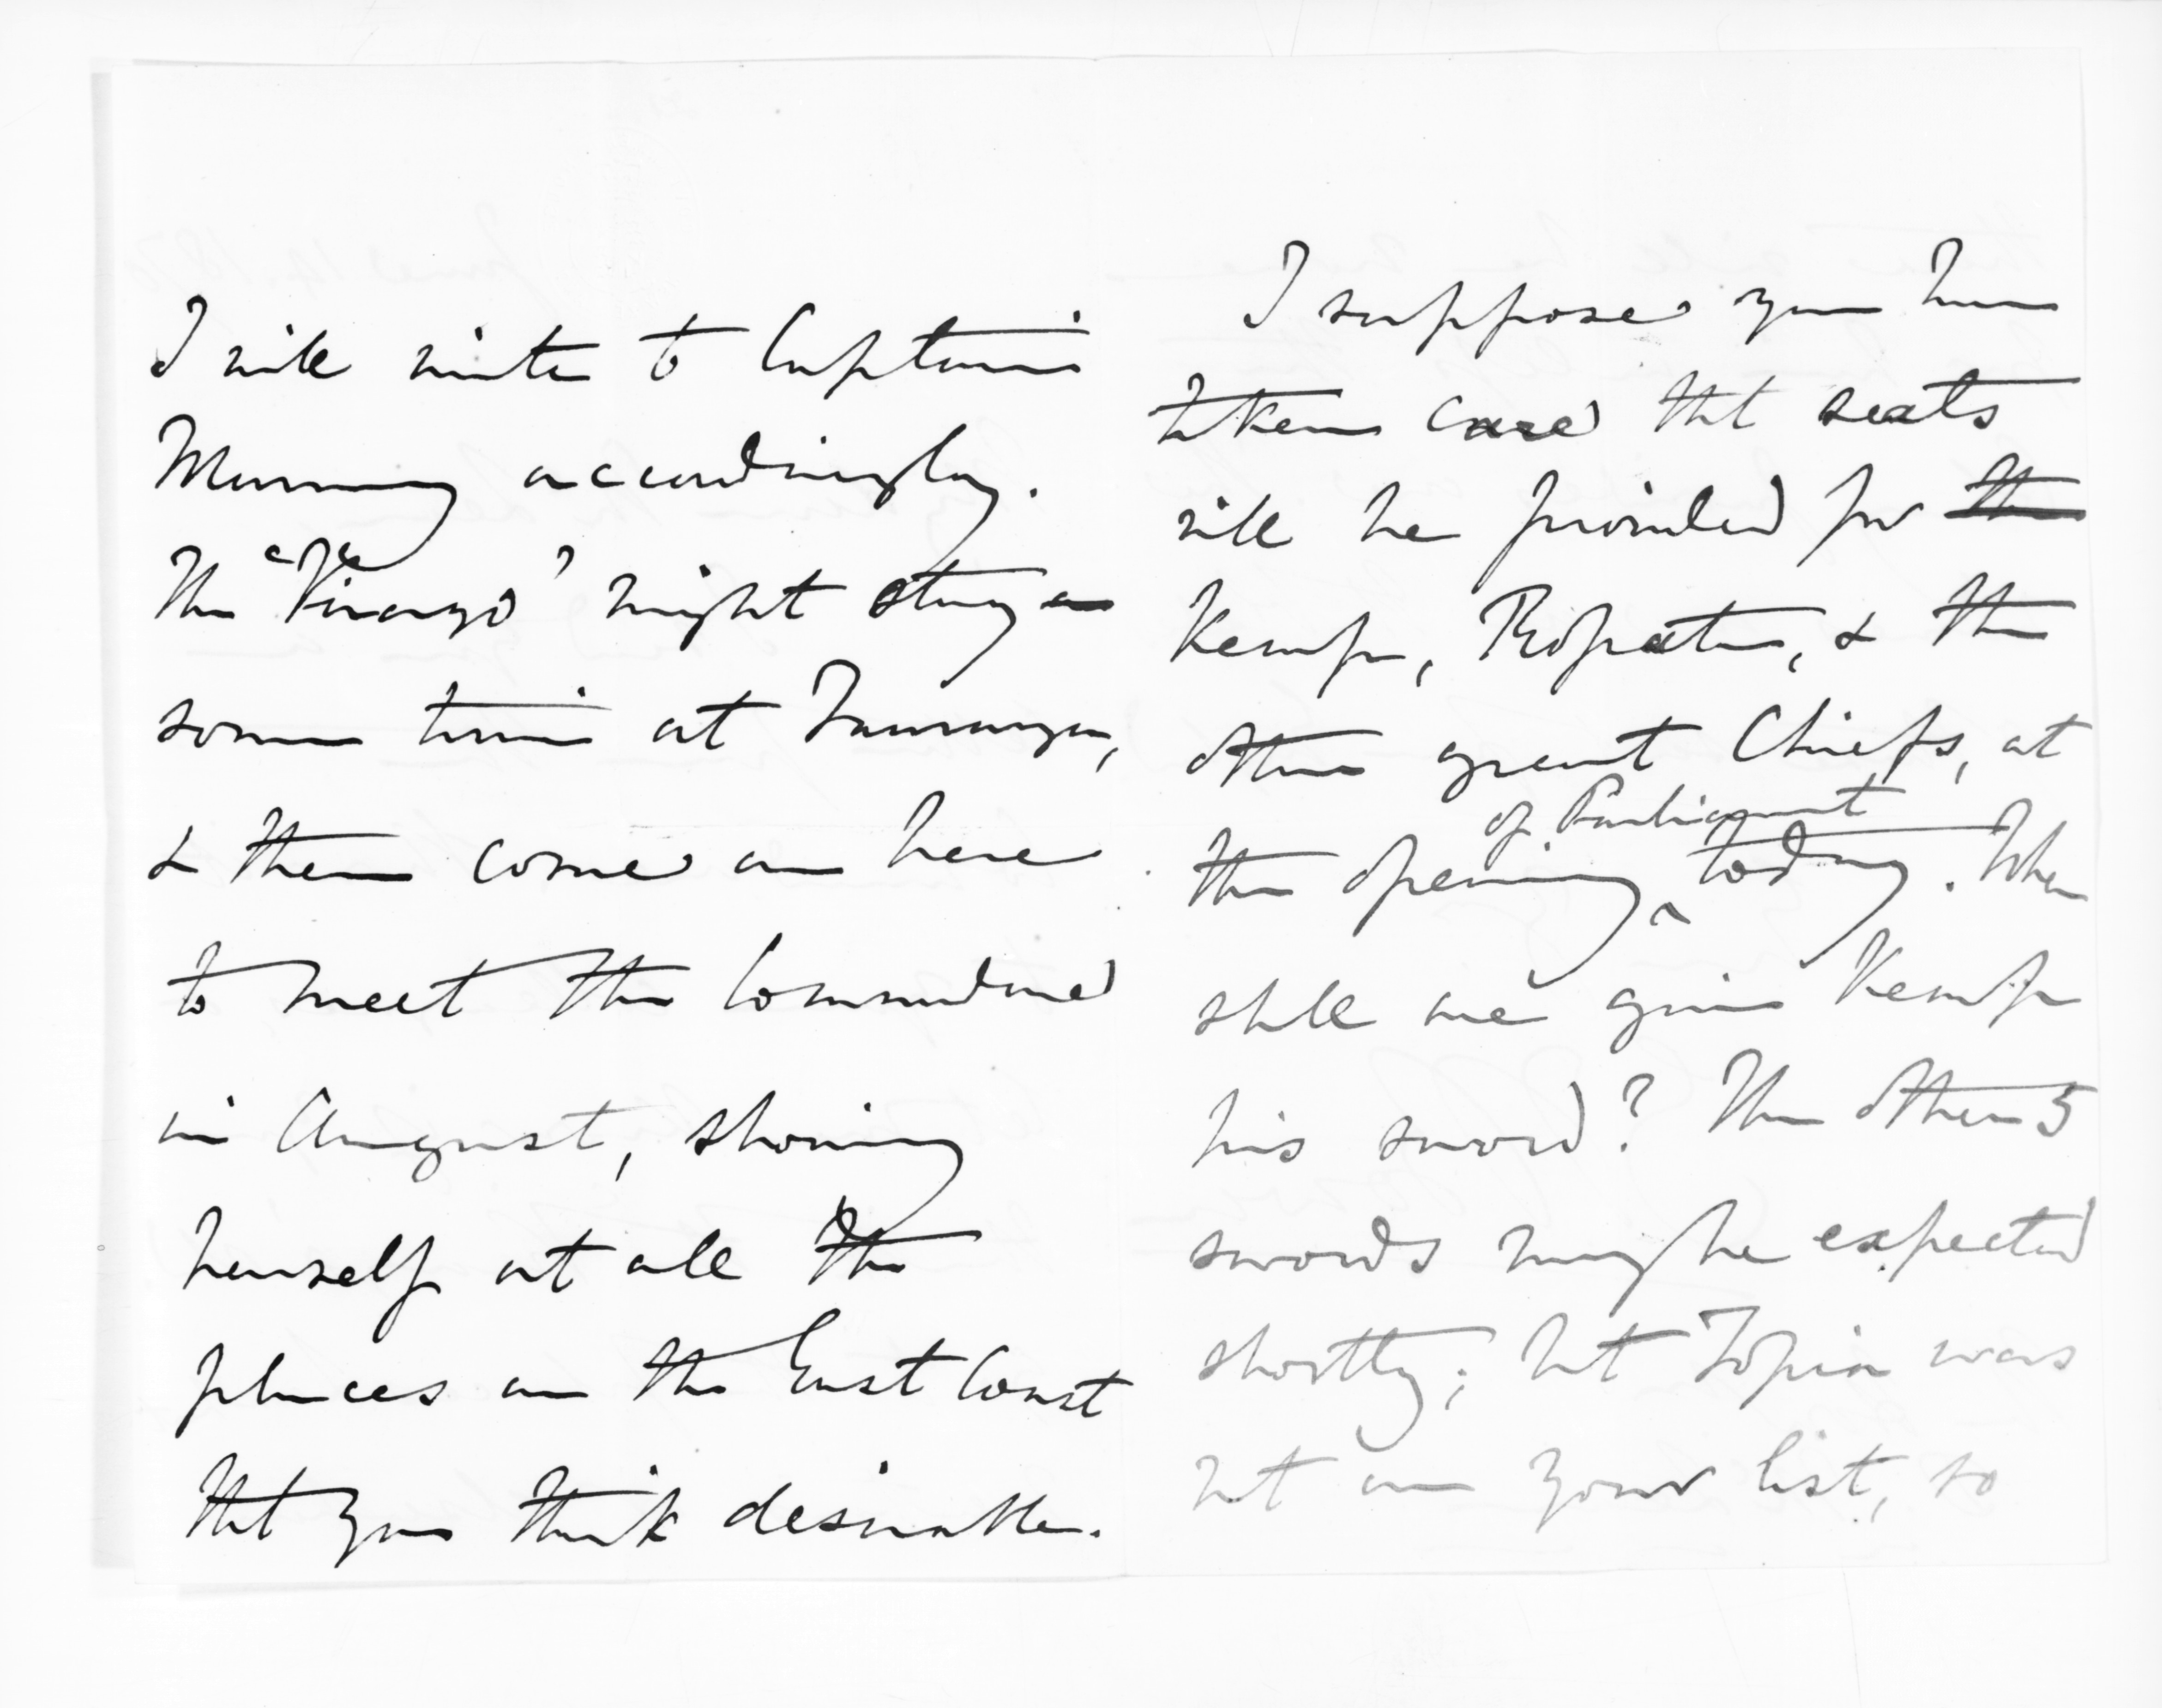 I will write to Captain
Murray accordingly.
The "Virago" might stay
some time at Tauranga,
& then come on here
to meet the Commodore
in August, showing
herself at all the
places on the East Coast
that you think desirable.
I suppose you have
taken care that seats
will be provided for the
Kemp, Ropata, & the
other great Chiefs, at
the opening of Parliament today. When
shall we give Kemp
his sword? The other 5
swords may be expected
shortly; but Topia was
not on your list, so